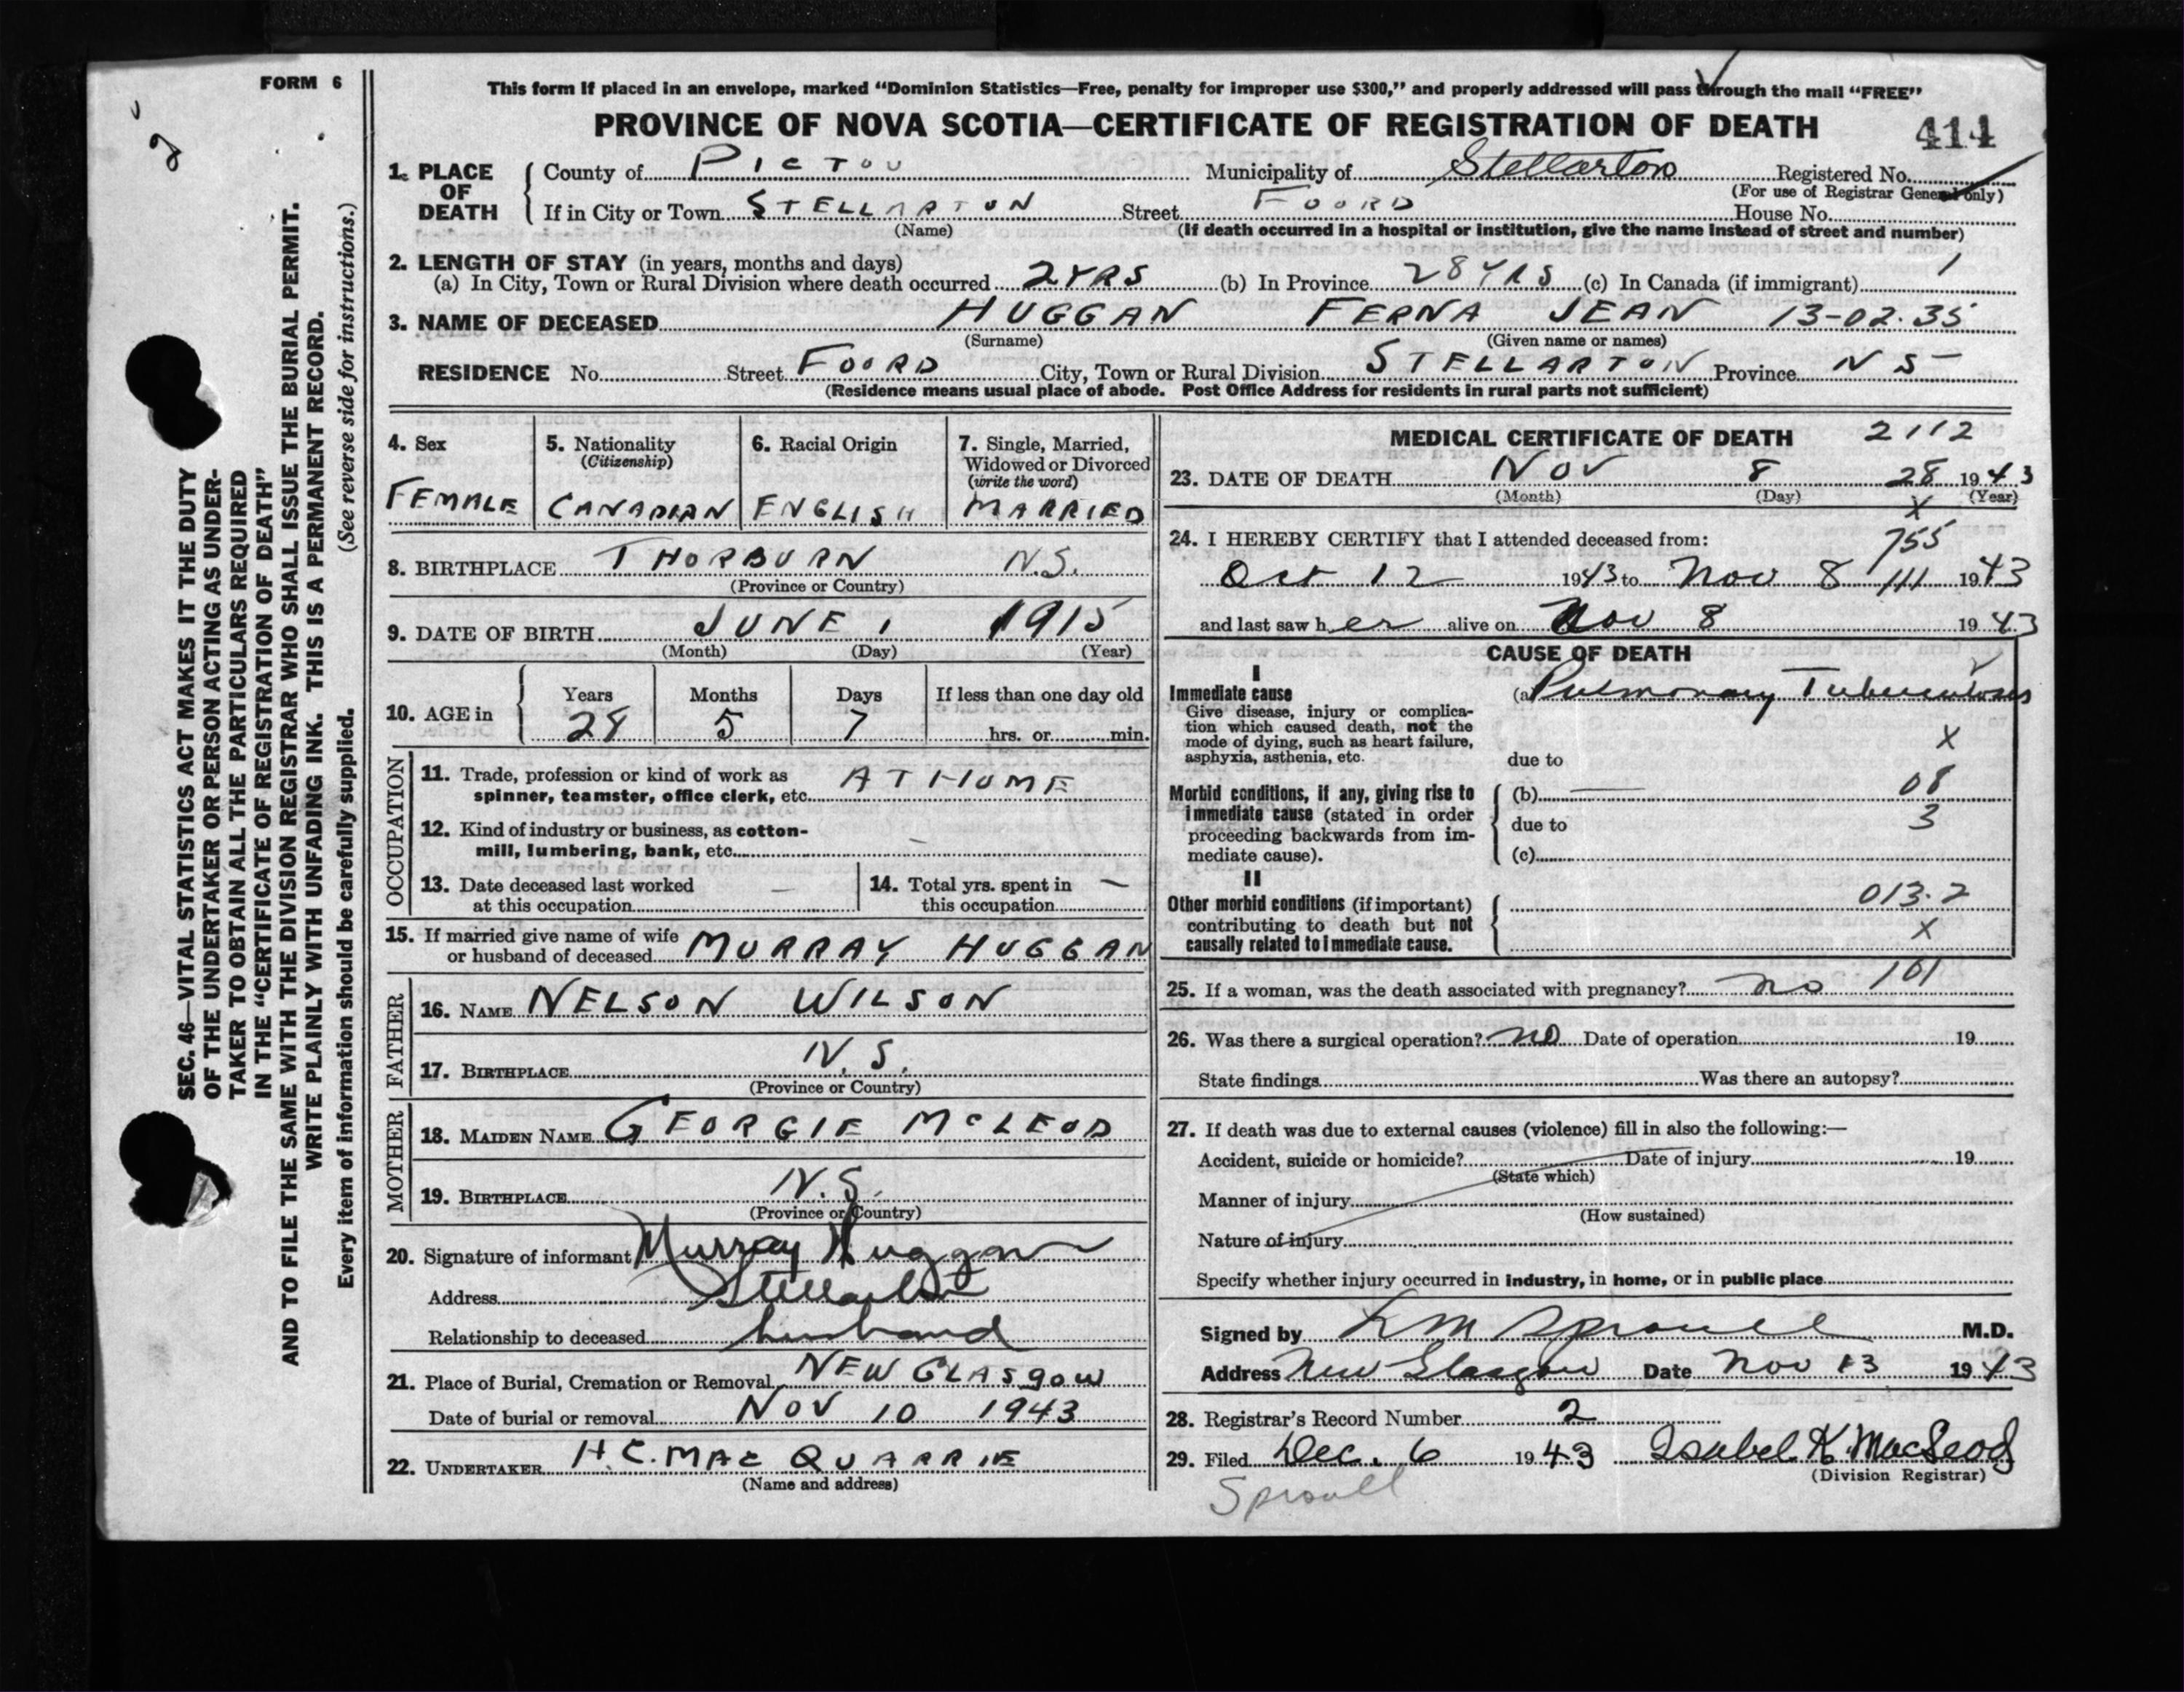 FORM 6
This form if placed in an envelope, marked "Dominion Statistics—Free, penalty for improper use $300," and properly addressed will pass through the mail "FREE"
PROVINCE OF NOVA SCOTIA—CERTIFICATE OF REGISTRATION OF DEATH 414
1. PLACE OF DEATH
County of PICTOU Municipality of Stellarton Registered No.
(For use of Registrar General only)
If in City or Town STELLARTON Street FOORD House No.
(Name) (If death occurred in a hospital or institution, give the name instead of street and number)
2. LENGTH OF STAY (in years, months and days)
(a) In City, Town or Rural Division where death occurred 2 YRS (b) In Province 28 YRS (c) In Canada (if immigrant) 1
3. NAME OF DECEASED HUGGAN FERNA JEAN 13-02.35
(Surname) (Given name or names)
RESIDENCE No. Street FOORD City, Town or Rural Division STELLARTON Province N S
(Residence means usual place of abode. Post Office Address for residents in rural parts not sufficient)
4. Sex
FEMALE
5. Nationality
(Citizenship)
CANADIAN
6. Racial Origin
ENGLISH
7. Single, Married,
Widowed or Divorced
(write the word)
MARRIED
8. BIRTHPLACE THORBURN N.S.
(Province or Country)
9. DATE OF BIRTH JUNE 1 1915
(Month) (Day) (Year)
10. AGE in
Years Months Days If less than one day old
28 5 7 hrs. or min.
OCCUPATION
11. Trade, profession or kind of work as
spinner, teamster, office clerk, etc. AT HOME
12. Kind of industry or business, as cotton-
mill, lumbering, bank, etc. –
13. Date deceased last worked
at this occupation –
14. Total yrs. spent in
this occupation –
15. If married give name of wife
or husband of deceased MURRAY HUGGAN
FATHER
16. NAME NELSON WILSON
17. BIRTHPLACE N.S.
(Province or Country)
MOTHER
18. MAIDEN NAME GEORGIE McLEOD
19. BIRTHPLACE N.S.
(Province or Country)
20. Signature of informant Murray Huggan
Address Stellarton
Relationship to deceased husband
21. Place of Burial, Cremation or Removal NEW GLASGOW
Date of burial or removal NOV 10 1943
22. UNDERTAKER H.C. MACQUARRIE
(Name and address)
MEDICAL CERTIFICATE OF DEATH 2112
23. DATE OF DEATH NOV 8 28 1943
(Month) (Day) (Year)
X
24. I HEREBY CERTIFY that I attended deceased from: 755
Oct 12 1943 to Nov 8 111 1943
and last saw her alive on Nov 8 1943
CAUSE OF DEATH
I
Immediate cause (a) Pulmonary Tuberculosis
Give disease, injury or complica-
tion which caused death, not the
mode of dying, such as heart failure,
asphyxia, asthenia, etc.
X
due to
Morbid conditions, if any, giving rise to
immediate cause (stated in order
proceeding backwards from im-
mediate cause).
(b) — 08
due to 3
(c)
II
Other morbid conditions (if important)
contributing to death but not
causally related to immediate cause.
013.2
X
25. If a woman, was the death associated with pregnancy? no 101
26. Was there a surgical operation? no Date of operation 19
State findings Was there an autopsy?
27. If death was due to external causes (violence) fill in also the following:—
Accident, suicide or homicide? Date of injury 19
(State which)
Manner of injury
(How sustained)
Nature of injury
Specify whether injury occurred in industry, in home, or in public place
Signed by L M Sproull M.D.
Address New Glasgow Date Nov 13 1943
28. Registrar's Record Number 2
29. Filed Dec. 6 1943 Isabel K. MacLeod
(Division Registrar)
Sproull
SEC. 46—VITAL STATISTICS ACT MAKES IT THE DUTY
OF THE UNDERTAKER OR PERSON ACTING AS UNDER-
TAKER TO OBTAIN ALL THE PARTICULARS REQUIRED
IN THE "CERTIFICATE OF REGISTRATION OF DEATH"
AND TO FILE THE SAME WITH THE DIVISION REGISTRAR WHO SHALL ISSUE THE BURIAL PERMIT.
WRITE PLAINLY WITH UNFADING INK. THIS IS A PERMANENT RECORD.
Every item of information should be carefully supplied. (See reverse side for instructions.)